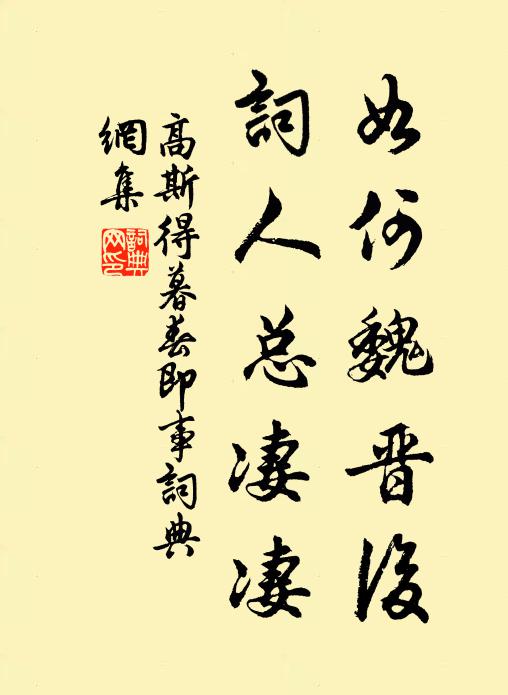 如何魏晋後
詞人总淒淒
高斯得暮春即事詞典
網集
詞典
网印